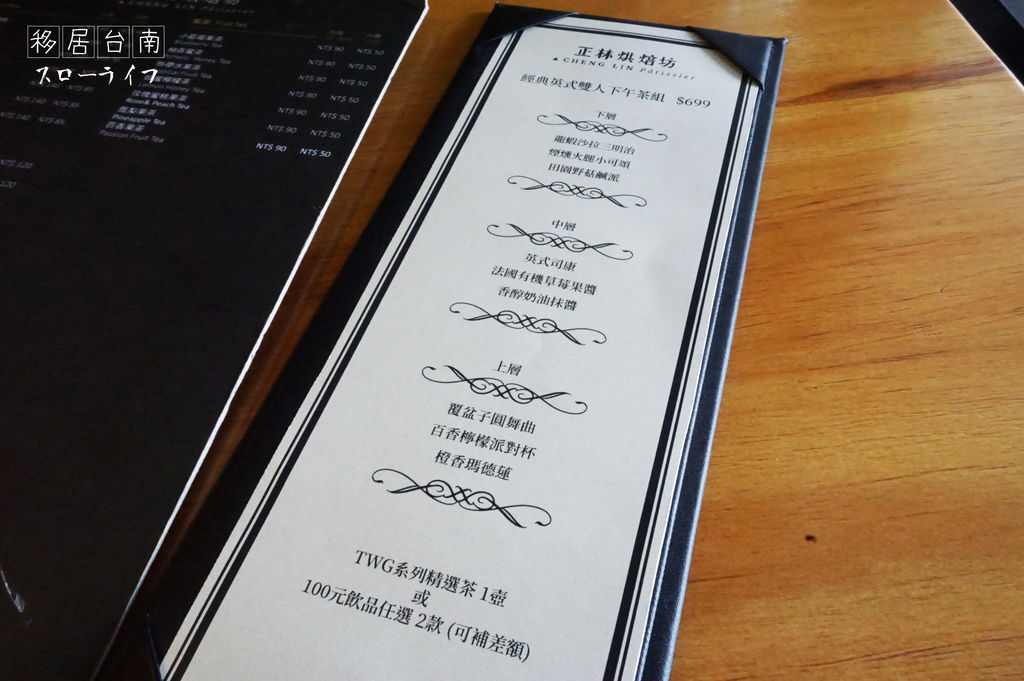 移居台南
スローライフ
Fruit Tea
NT$ 90 NT$ 50
NT$ 90 NT$ 50
NT$ 90 NT$ 50
Lemon Honey Tea
NT$ 90 NT$ 50
Rose& Peach Tea
NT$ 90 NT$ 50
Pineapple Tea
NT$ 90 NT$ 50
百香果茶
Passion Fruit Tea
NT$ 90 NT$ 50
NT$ 120
正林烘焙坊
CHENG LIN Pâtissier
經典英式雙人下午茶組 $699
下層
龍蝦沙拉三明治
煙燻火腿小可頌
田園野菇鹹派
中層
英式司康
法國有機草莓果醬
香醇奶油抹醬
上層
覆盆子圓舞曲
百香檸檬派對杯
橙香瑪德蓮
TWG系列精選茶 1壺
或
100元飲品任選 2款 (可補差額)